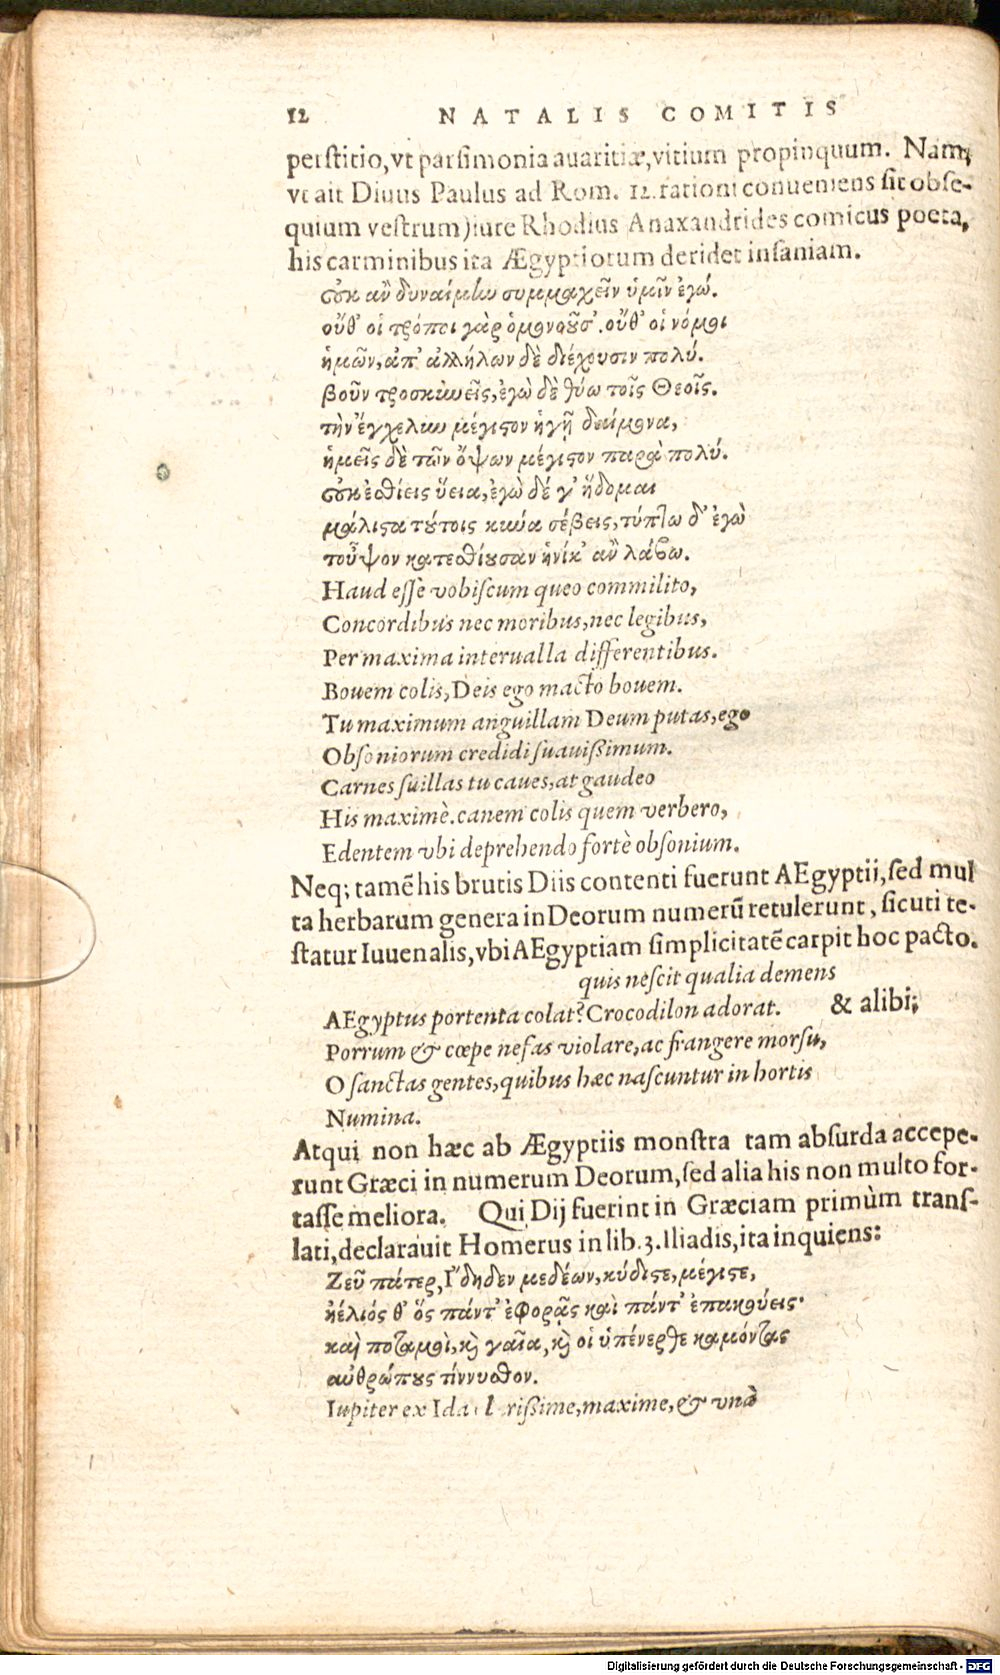 12 NATALIS COMITIS
perstitio,vt parsimonia auaritiæ,vitium propinquum. Nam,
vt ait Diuus Paulus ad Rom. 12.rationi conueniens sit obse-
quium vestrum)iure Rhodius Anaxandrides comicus poeta,
his carminibus ita Ægyptiorum deridet insaniam.
οὐκ ἂν δυναίμην συμμαχεῖν ὑμῖν ἐγώ.
οὔθ' οἱ τρόποι γὰρ ὁμονοῦσ'.οὔθ' οἱ νόμοι
ἡμῶν,ἀπ' ἀλλήλων δὲ διέχουσιν πολύ.
βοῦν προσκυνεῖς,ἐγὼ δὲ θύω τοῖς Θεοῖς.
τὴν ἔγχελυν μέγιστον ἡγῇ δαίμονα,
ἡμεῖς δὲ τῶν ὄψων μέγιστον παρὰ πολύ.
οὐκ ἐσθίεις ὕεια,ἐγὼ δέ γ' ἥδομαι
μάλιστα τούτοις κύνα σέβεις,τύπτω δ' ἐγὼ
τοὖψον κατεσθίουσαν ἡνίκ' ἂν λάβω.
Haud esse vobiscum queo commilito,
Concordibus nec moribus,nec legibus,
Per maxima interualla differentibus.
Bouem colis,Deis ego macto bouem.
Tu maximum anguillam Deum putas,ego
Obsoniorum credidi suauissimum.
Carnes suillas tu caues,at gaudeo
His maximè.canem colis quem verbero,
Edentem vbi deprehendo fortè obsonium.
Neq; tamē his brutis Diis contenti fuerunt AEgyptii,sed mul
ta herbarum genera in Deorum numerū retulerunt, sicuti te-
statur Iuuenalis,vbi AEgyptiam simplicitatē carpit hoc pacto.
quis nescit qualia demens
AEgyptus portenta colat? Crocodilon adorat. & alibi;
Porrum & cœpe nefas violare,ac frangere morsu,
O sanctas gentes,quibus hæc nascuntur in hortis
Numina.
Atqui non hæc ab Ægyptiis monstra tam absurda accepe-
runt Græci in numerum Deorum,sed alia his non multo for-
tasse meliora. Qui Dij fuerint in Græciam primùm trans-
lati,declarauit Homerus in lib.3.Iliadis,ita inquiens:
Ζεῦ πάτερ,Ἴδηθεν μεδέων,κύδιστε,μέγιστε,
ἠέλιός θ' ὃς πάντ' ἐφορᾷς καὶ πάντ' ἐπακούεις·
καὶ ποταμοὶ,καὶ γαῖα,καὶ οἱ ὑπένερθε καμόντας
ἀνθρώπους τίννυσθον.
Iupiter ex Ida maxime,& vnà
Digitalisierung gefördert durch die Deutsche Forschungsgemeinschaft - DFG